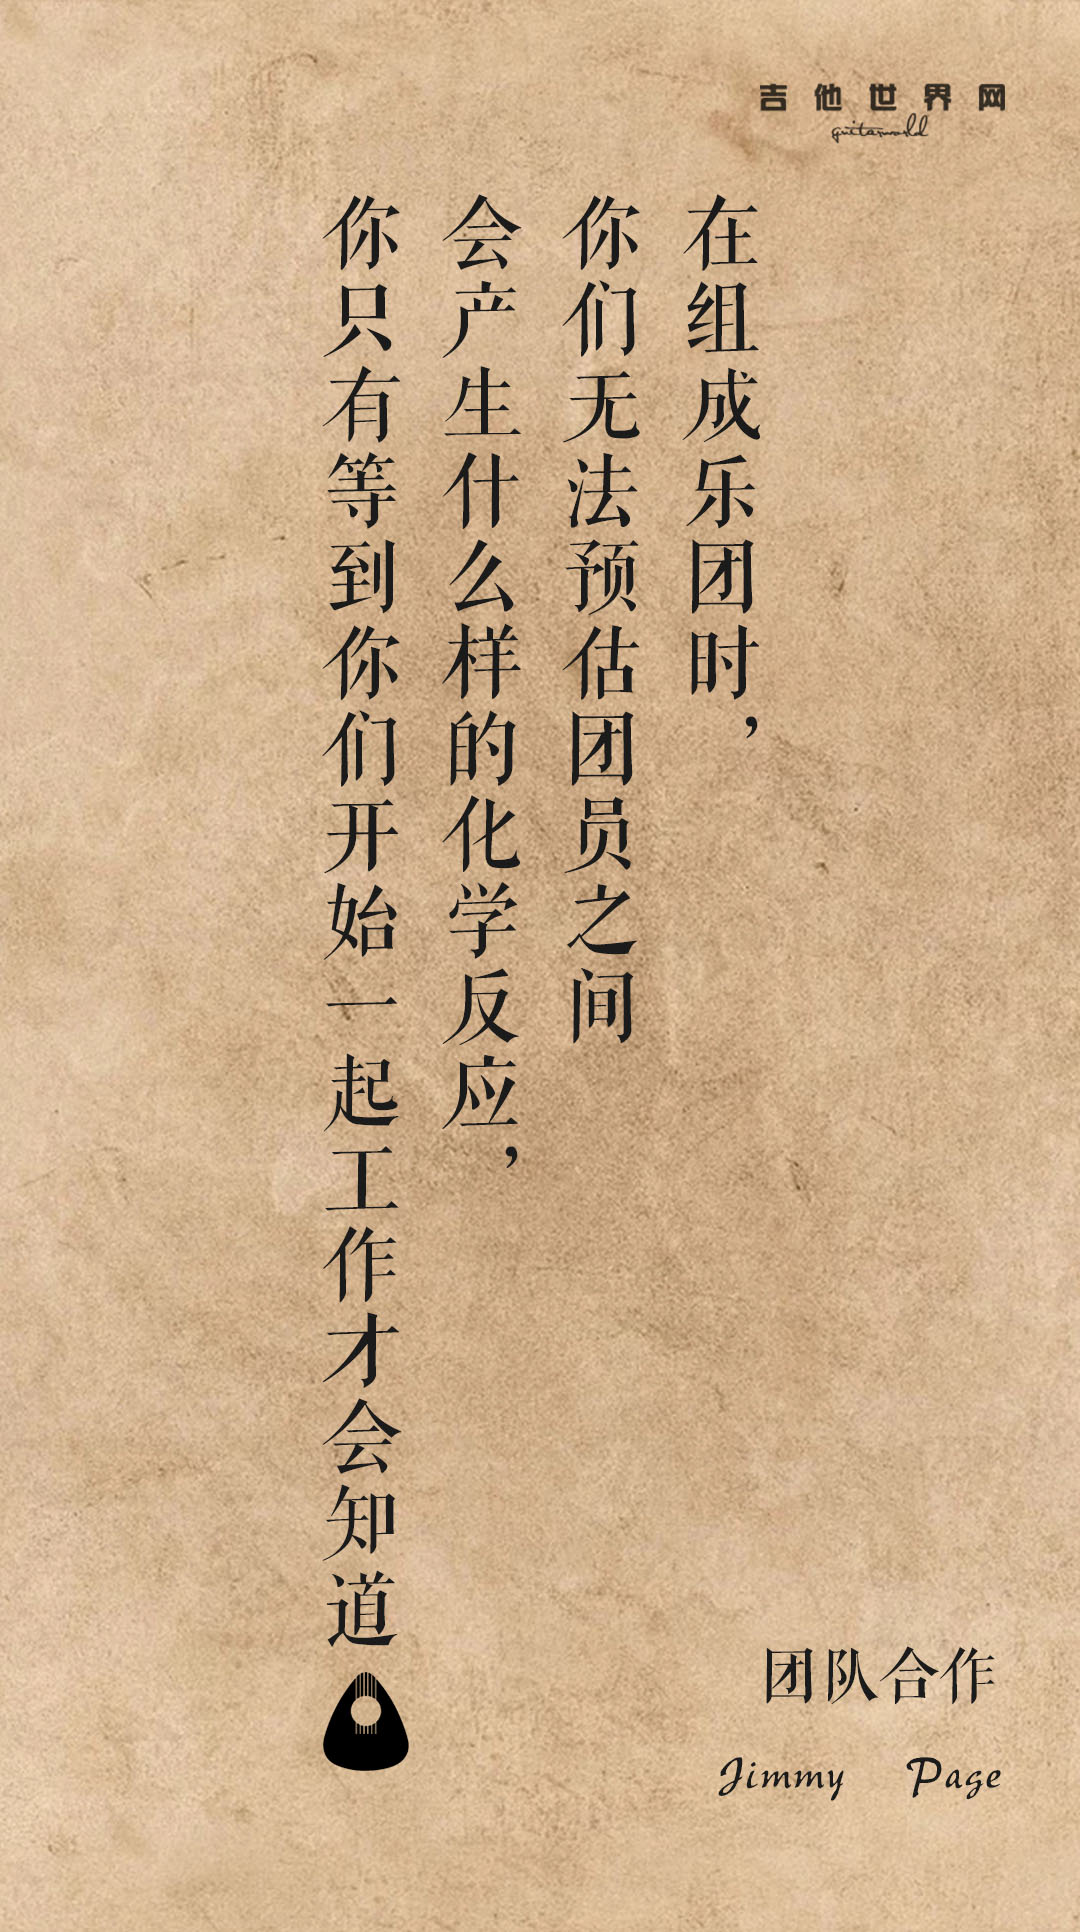 吉他世界网
guitarworld
在组成乐团时，
你们无法预估团员之间
会产生什么样的化学反应，
你只有等到你们开始一起工作才会知道
团队合作
Jimmy Page